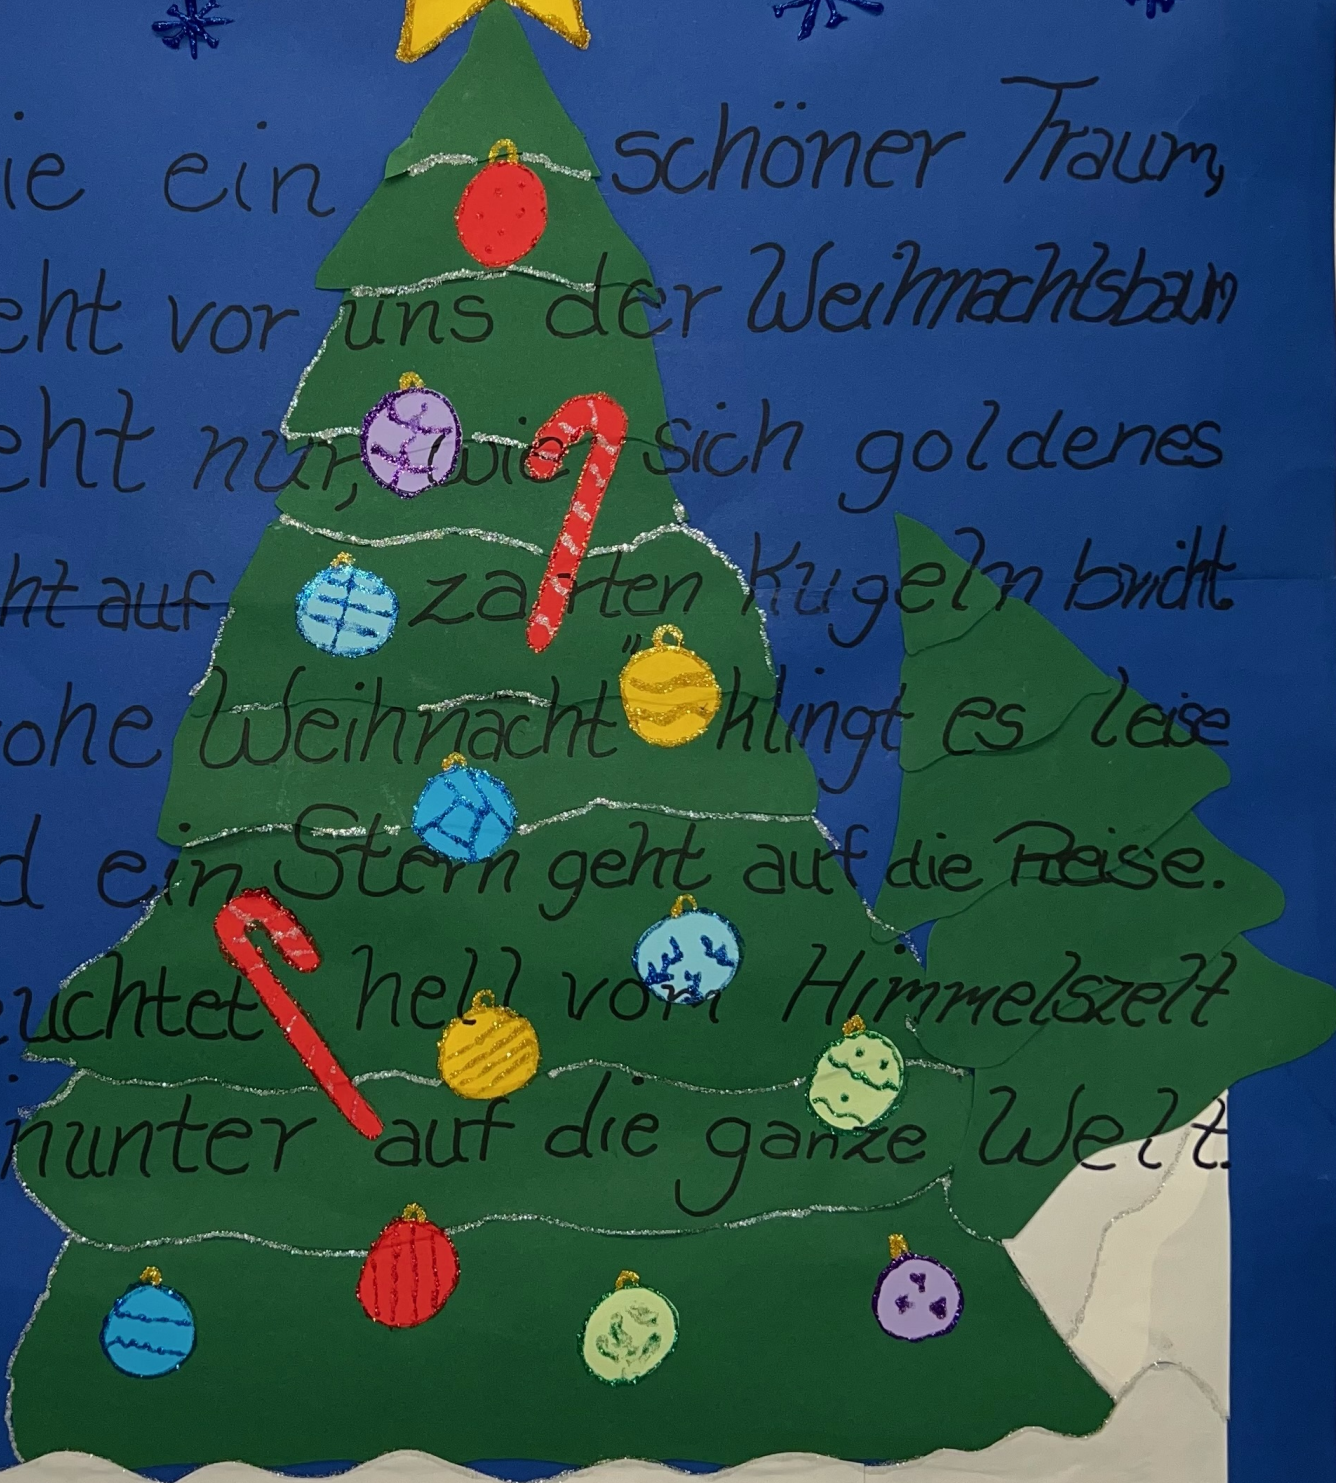 ie ein schöner Traum,
eht vor uns der Weihnachtsbaum
eht nur, wie sich goldenes
ht auf zarten Kugeln bricht.
ohe Weihnacht" klingt es leise
d ein Stern geht auf die Reise.
euchtet hell vom Himmelszelt
nunter auf die ganze Welt.